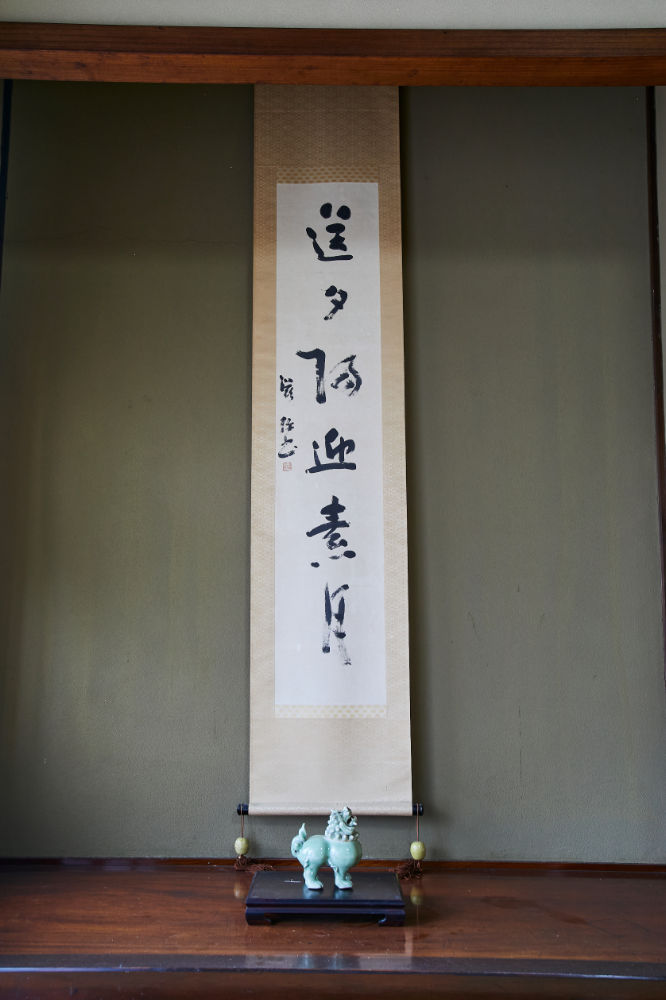 送夕陽迎素月